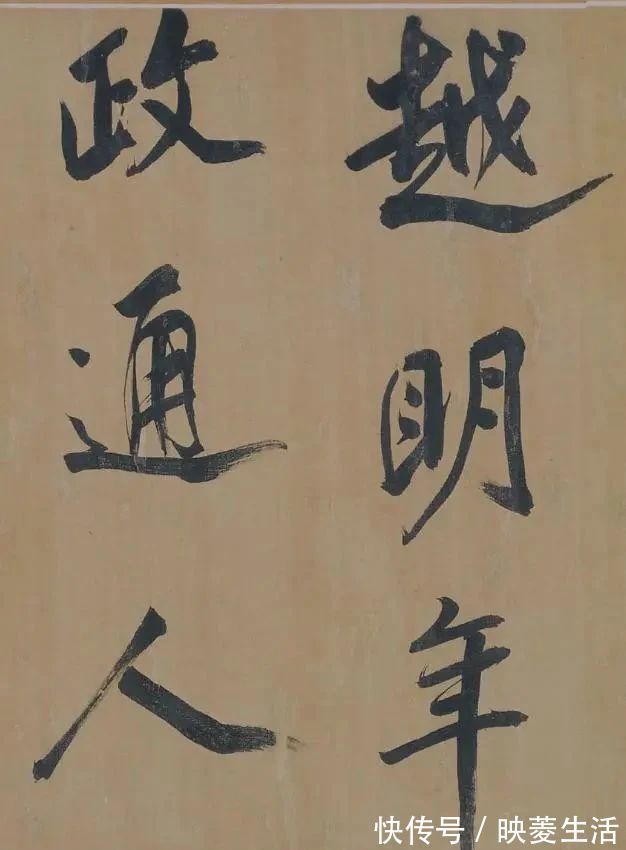 越明年
政通人
快传号/映菱生活